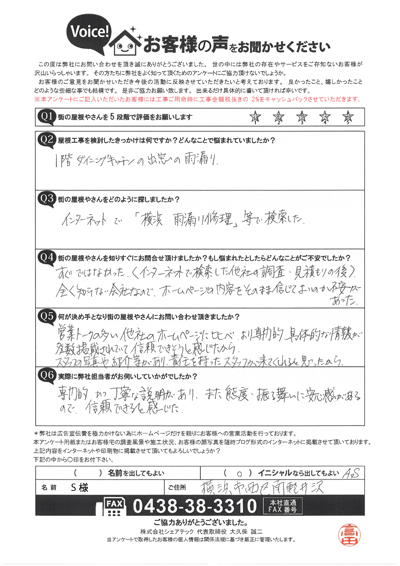 Voice! お客様の声をお聞かせください
この度は弊社にお問い合わせを頂き誠にありがとうございました。世の中には弊社の存在やサービスをご存知ないお客様が
沢山いらっしゃいます。その方たちに弊社をよく知って頂くためのアンケートにご協力頂けないでしょうか。
お客様のご意見をお聞かせいただき今後の活動に反映させていただきたいと考えております。良かったこと、嬉しかったこと
どのような些細な事でも結構です。是非ご協力お願い致します。出来るだけ具体的に書いて頂ければ幸いです。
※本アンケートにご記入いただいたお客様には工事ご用命時に工事金額税抜きの 2%をキャッシュバックさせていただきます。
Q1 街の屋根やさんを5段階で評価をお願いします ☆ ☆ ☆ ☆ ☆
Q2 屋根工事を検討したきっかけは何ですか?どんなことで悩まれていましたか?
1階ダイニングキッチンの出窓の雨漏り
Q3 街の屋根やさんをどのように探しましたか?
インターネットで「横浜 雨漏り修理」等で検索した。
Q4 街の屋根やさんを知りすぐにお問合せ頂けましたか?もし悩まれたとしたらどんなことがご不安でしたか?
すぐではなかった。(インターネットで検索した他社の調査・見積もりの後)
全く知らない会社なので、ホームページの内容をそのまま信じてよいのか不安が
あった。
Q5 何が決め手となり街の屋根やさんにお問い合わせ頂けましたか?
営業トークの多い他社のホームページに比べ、より専門的、具体的な情報が
多数掲載されていて信頼できそうと感じたから。
スタッフの写真や紹介等があり、責任を持ったスタッフが来てくれると思ったから。
Q6 実際に弊社担当者がお伺いしていかがでしたか?
専門的かつ丁寧な説明があり、また態度・振る舞いに安心感がある
ので、信頼できると感じた。
※弊社は広告宣伝費を極力かけない為にホームページだけを頼りにお客様への営業活動を行っております。
本アンケート用紙またはお客様宅の調査風景や施工状況、お客様の顔写真を随時ブログ形式のインターネットに掲載させて頂いております。
上記内容をインターネットや印刷物に掲載させて頂いてもよろしいでしょうか?
下記の中から○印をお付下さい。
( ) 名前を出してもよい ( ○ ) イニシャルなら出してもよい
名前 S様 ご住所 横浜市西区南軽井沢
FAX 0438-38-3310 本社直通 FAX番号
ご協力ありがとうございました。
株式会社シェアテック 代表取締役 大久保 誠二
当アンケートで取得したお客様の個人情報は関係法規に基づき厳正に管理いたします。